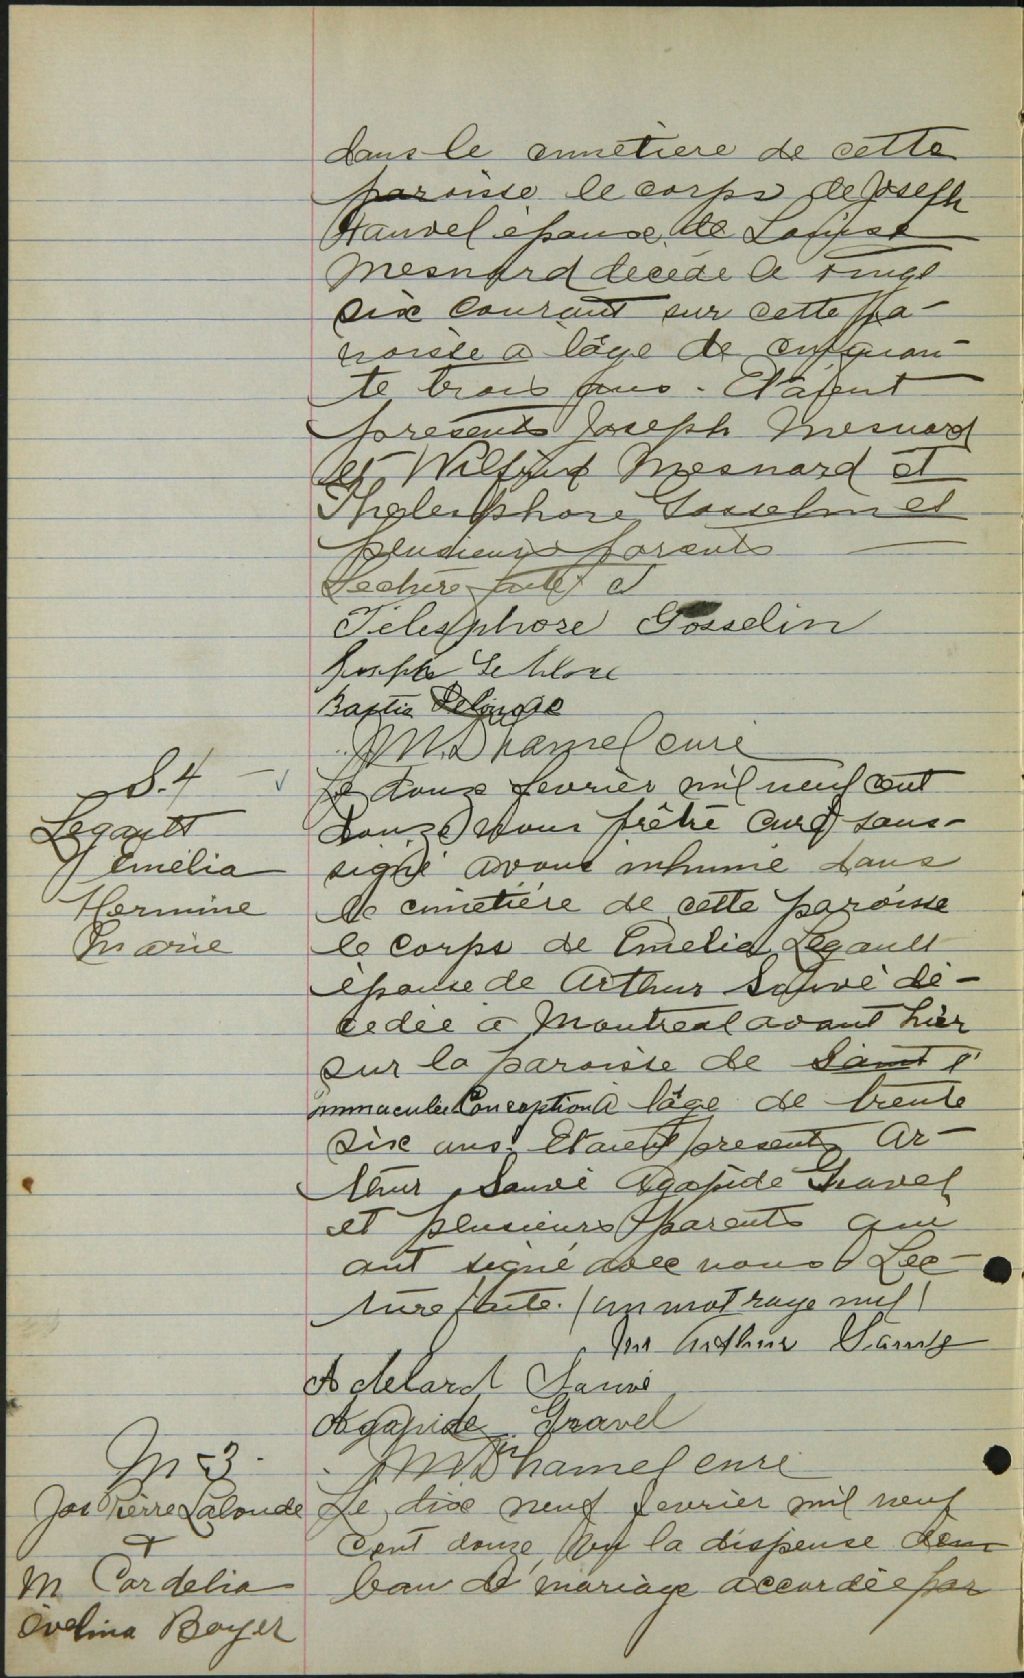 dans le cimetiere de cette
paroisse le corps de Joseph
époux de Louise
Mesnard decéde le vingt
six courant sur cette pa-
roisse a lâge de cinquan-
te trois ans. Etaient
presents Joseph Mesnard
et Wilfrid Mesnard et
Thelesphore Gosselin et
plusieurs parents
Lecture faite
Télesphore Gosselin
Joseph
Baptis
Duhamel curé
S. 4
Legault
Emélia
Hermine
Marie
Le douze fevrier mil neuf cent
douze nous prêtre curé sous-
signé avons inhumé dans
le cimetiére de cette paroisse
le corps de Emelia Legault
épouse de Arthur Sauvé dé-
cedée a Montreal avant hier
sur la paroisse de Saint l'
immaculée Conception à lâge de trente
six ans. Etaient presents Ar-
thur Sauvé Agapide Gravel
et plusieurs parents qui
ont signé avec nous Lec-
ture faite. (un mot rayé nul)
Arthur Sauvé
Adelard Sauvé
Agapide Gravel
Duhamel curé
M-3.
Jos Pierre Lalonde
+
M Cordelia
Evelina Boyer
Le dix neuf fevrier mil neuf
cent douze, vu la dispense dun
ban de mariage accordée par